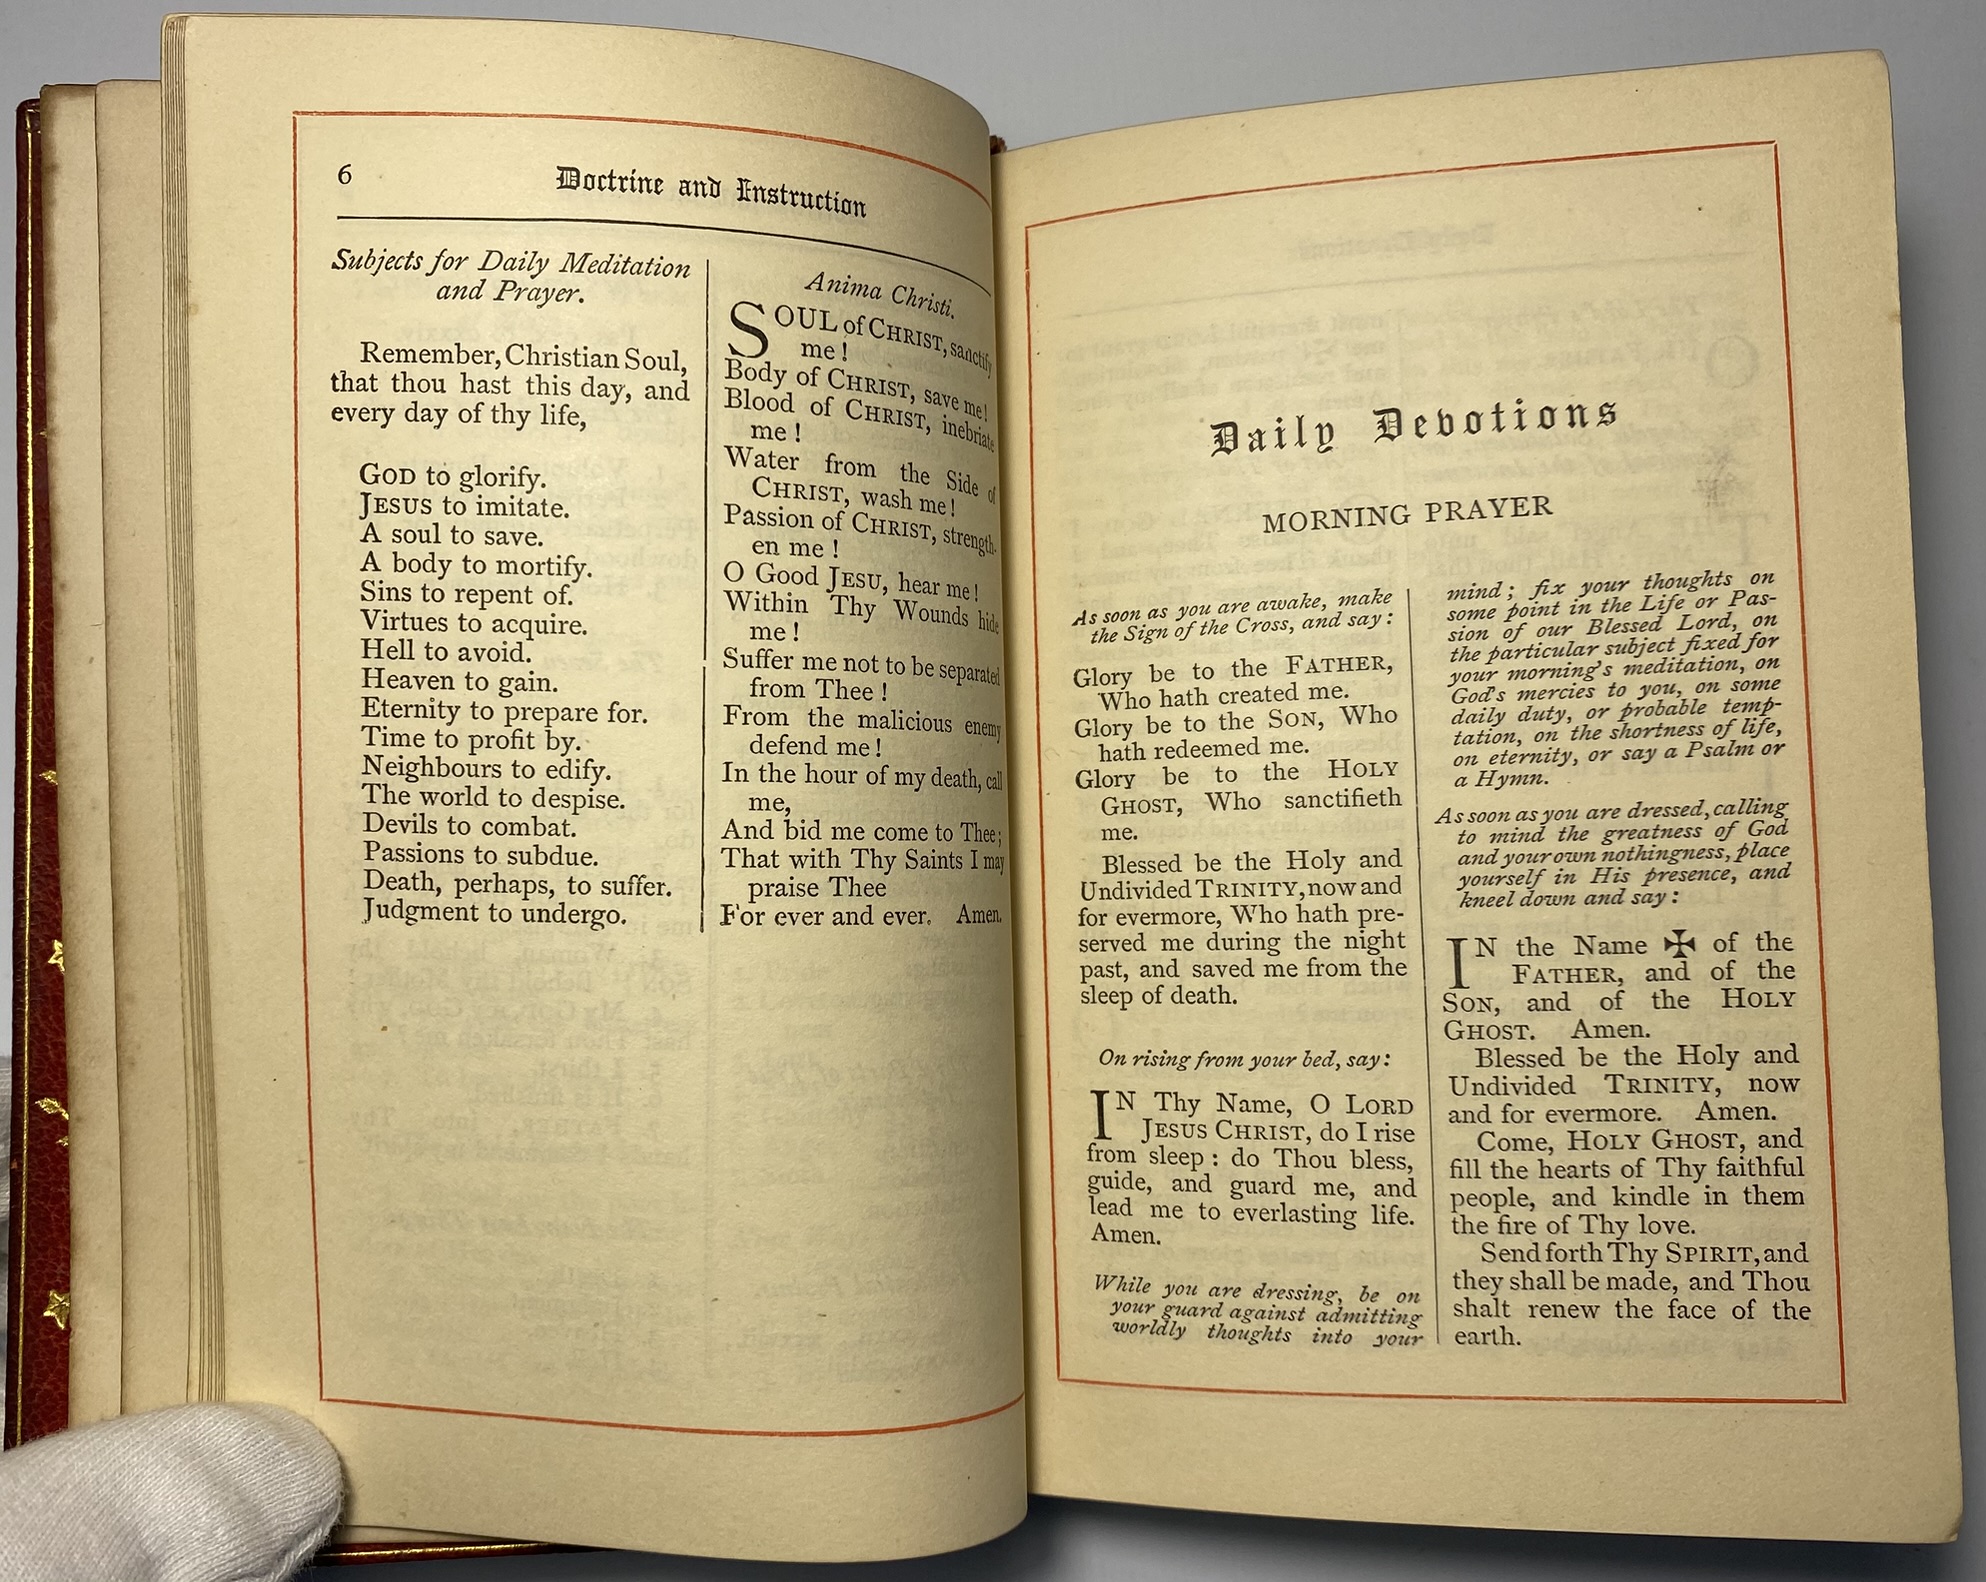 6
Doctrine and Instruction
Subjects for Daily Meditation
and Prayer.
Remember, Christian Soul,
that thou hast this day, and
every day of thy life,
GOD to glorify.
JESUS to imitate.
A soul to save.
A body to mortify.
Sins to repent of.
Virtues to acquire.
Hell to avoid.
Heaven to gain.
Eternity to prepare for.
Time to profit by.
Neighbours to edify.
The world to despise.
Devils to combat.
Passions to subdue.
Death, perhaps, to suffer.
Judgment to undergo.
Anima Christi.
SOUL of CHRIST, sanctify
me !
Body of CHRIST, save me!
Blood of CHRIST, inebriate
me !
Water from the Side of
CHRIST, wash me !
Passion of CHRIST, strength-
en me !
O Good JESU, hear me !
Within Thy Wounds hide
me !
Suffer me not to be separated
from Thee !
From the malicious enemy
defend me !
In the hour of my death, call
me,
And bid me come to Thee;
That with Thy Saints I may
praise Thee
For ever and ever. Amen.
Daily Devotions
MORNING PRAYER
As soon as you are awake, make
the Sign of the Cross, and say :
Glory be to the FATHER,
Who hath created me.
Glory be to the SON, Who
hath redeemed me.
Glory be to the HOLY
GHOST, Who sanctifieth
me.
Blessed be the Holy and
Undivided TRINITY, now and
for evermore, Who hath pre-
served me during the night
past, and saved me from the
sleep of death.
On rising from your bed, say :
IN Thy Name, O LORD
JESUS CHRIST, do I rise
from sleep : do Thou bless,
guide, and guard me, and
lead me to everlasting life.
Amen.
While you are dressing, be on
your guard against admitting
worldly thoughts into your
mind ; fix your thoughts on
some point in the Life or Pas-
sion of our Blessed Lord, on
the particular subject fixed for
your morning's meditation, on
God's mercies to you, on some
daily duty, or probable temp-
tation, on the shortness of life,
on eternity, or say a Psalm or
a Hymn.
As soon as you are dressed, calling
to mind the greatness of God
and your own nothingness, place
yourself in His presence, and
kneel down and say :
IN the Name ✠ of the
FATHER, and of the
SON, and of the HOLY
GHOST. Amen.
Blessed be the Holy and
Undivided TRINITY, now
and for evermore. Amen.
Come, HOLY GHOST, and
fill the hearts of Thy faithful
people, and kindle in them
the fire of Thy love.
Send forth Thy SPIRIT, and
they shall be made, and Thou
shalt renew the face of the
earth.